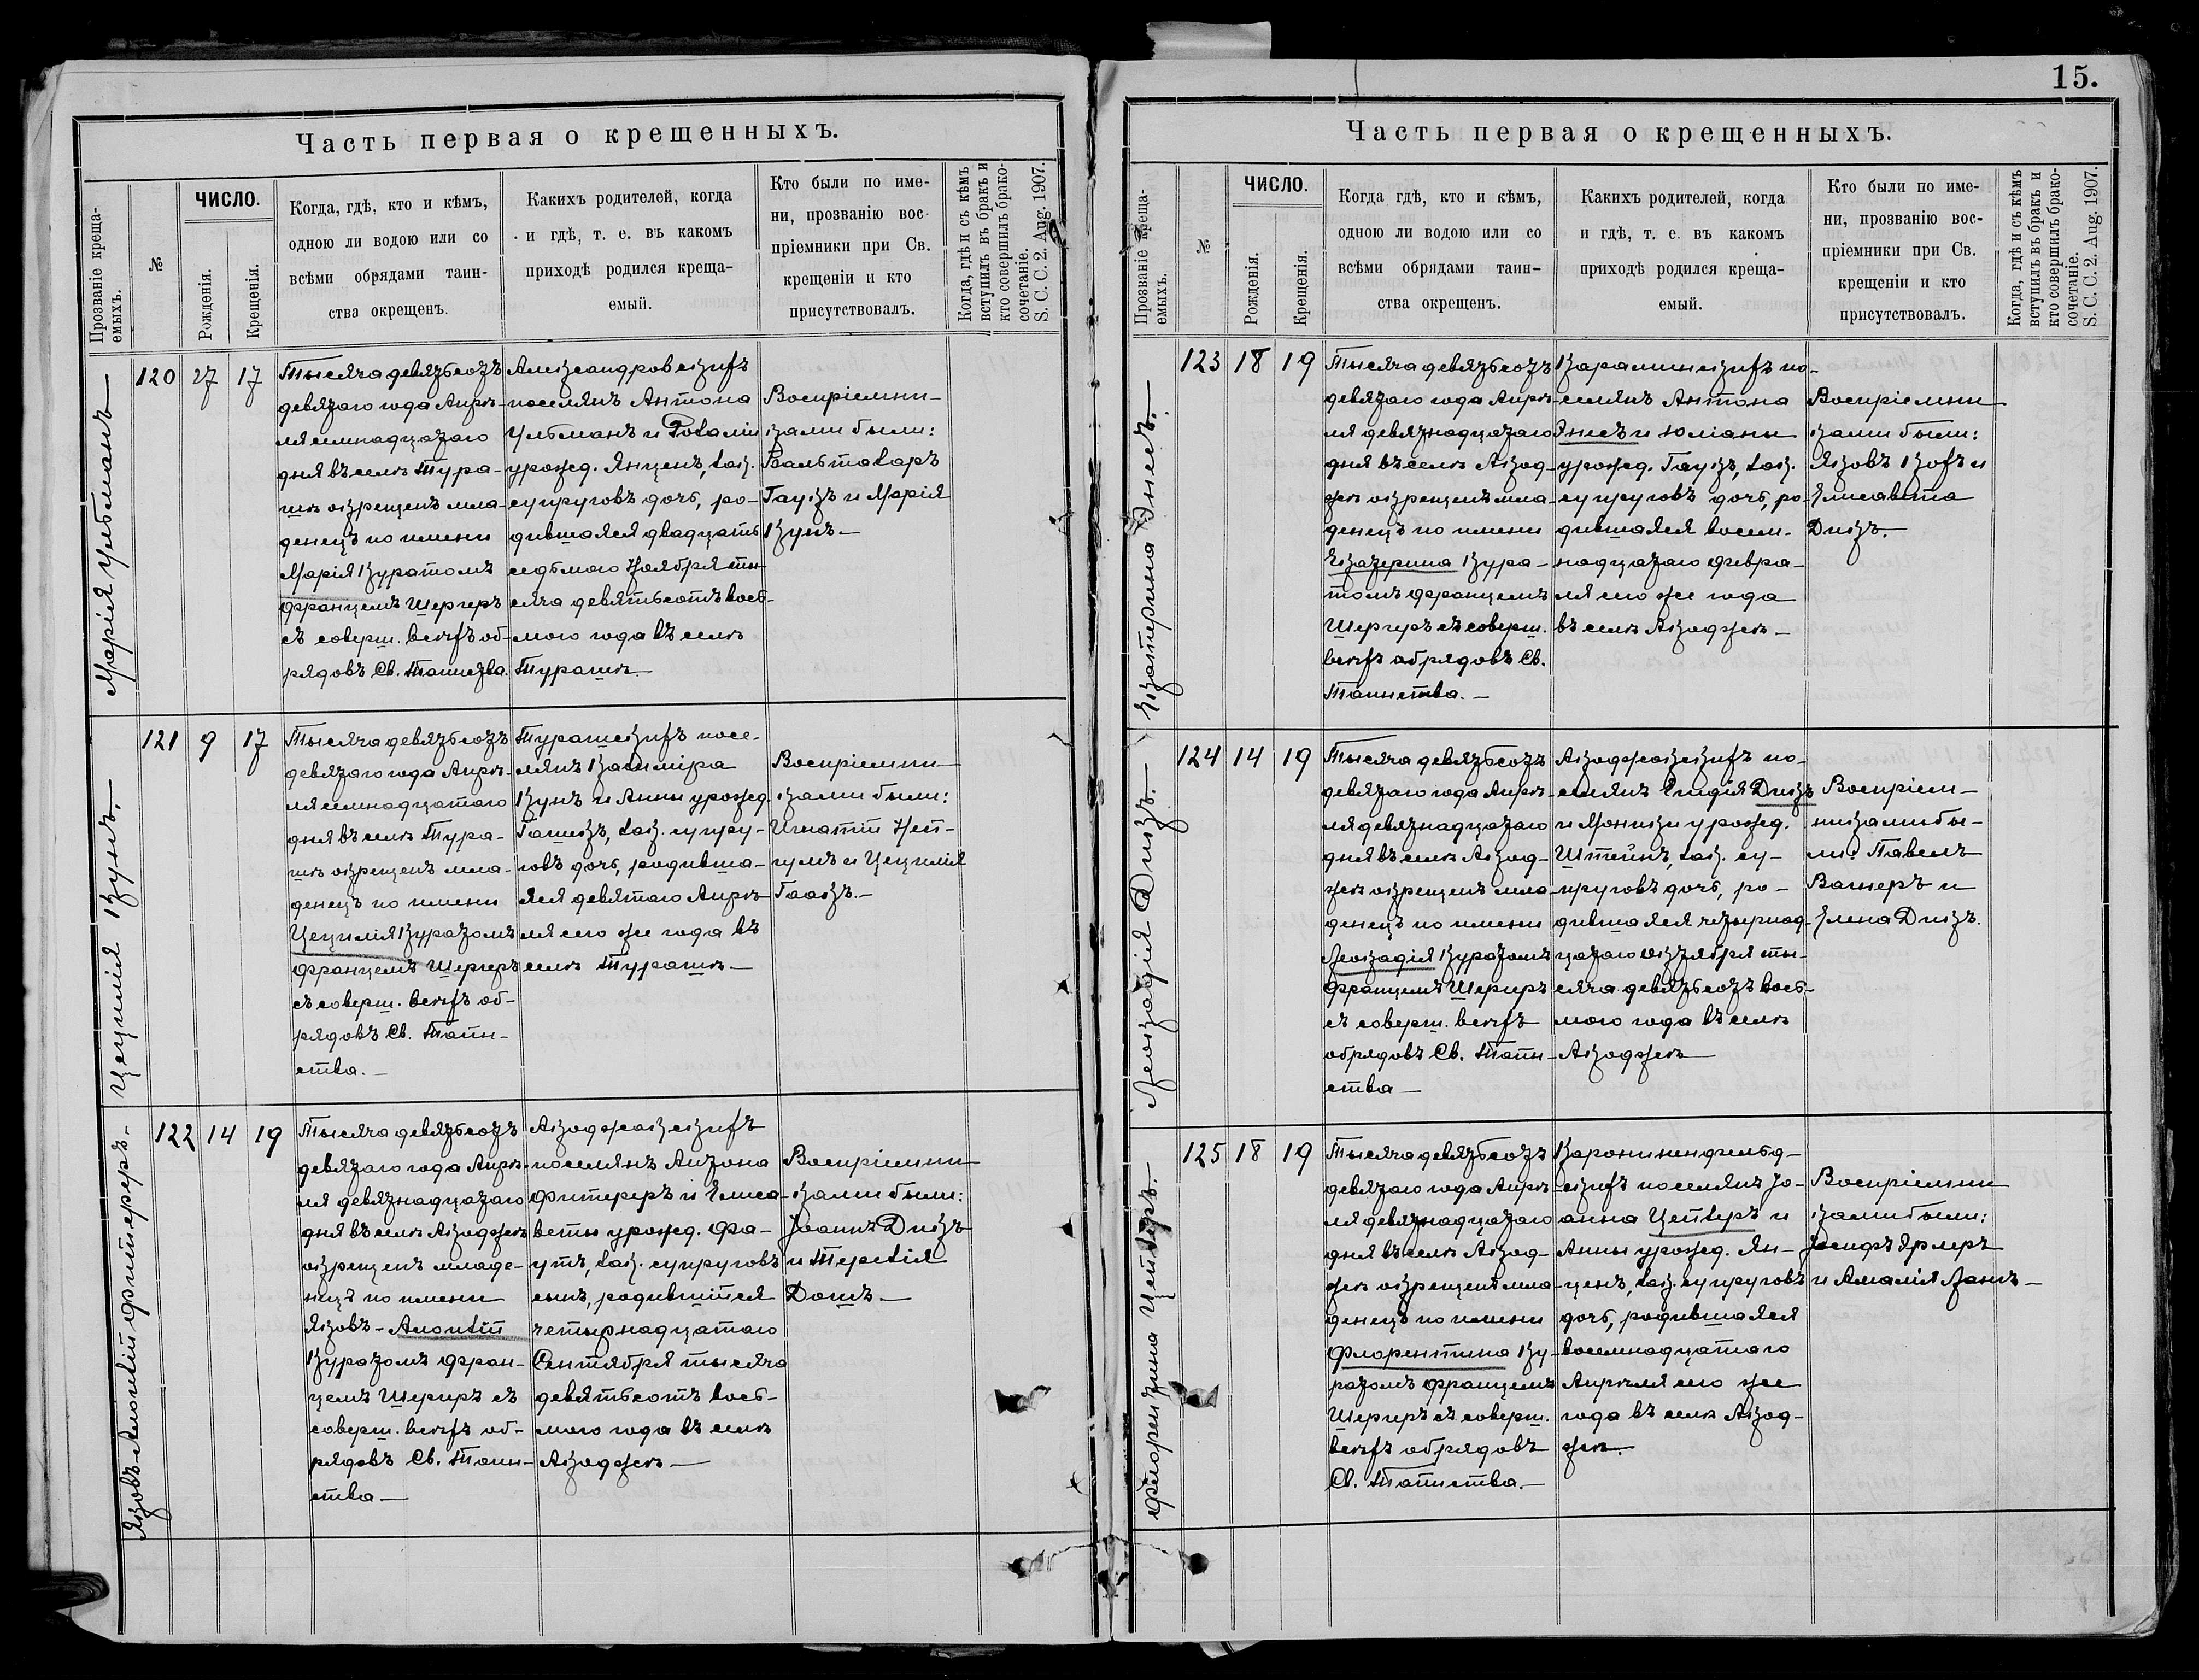 Часть первая о крещенныхъ.
Прозваніе креща-
емыхъ.
№
ЧИСЛО.
Рожденія.
Крещенія.
Когда, гдѣ, кто и кѣмъ,
одною ли водою или со
всѣми обрядами таин-
ства окрещенъ.
Какихъ родителей, когда
и гдѣ, т. е. въ какомъ
приходѣ родился креща-
емый.
Кто были по име-
ни, прозванію вос-
пріемники при Св.
крещеніи и кто
присутствовалъ.
Когда, гдѣ и съ кѣмъ
вступилъ въ бракъ и
кто совершилъ брако-
сочетаніе.
S. C. C. 2. Aug. 1907.
Марія Ульманъ
120
27
17
Тысяча девятьсотъ
девятаго года Апрѣ-
ля семнадцатаго
дня въ селѣ Тура-
шѣ окрещенъ мла-
денецъ по имени
Марія Куратомъ
Францемъ Шереръ
съ соверш. всѣхъ об-
рядовъ Св. Таинства.
Александровскихъ
поселянъ Антона
Ульманъ и Розаліи
урожд. Янценъ, зак.
супруговъ дочь, ро-
дившаяся двадцать
седьмого Ноября ты-
сяча девятьсотъ вось-
мого года въ селѣ
Турашѣ.
Воспріемни-
ками были:
Вальтазаръ
Гаукъ и Марія
Кунъ.
Цецилія Кунъ.
121
9
17
Тысяча девятьсотъ
девятаго года Апрѣ-
ля семнадцатаго
дня въ селѣ Тура-
шѣ окрещенъ мла-
денецъ по имени
Цецилія Куратомъ
Францемъ Шереръ
съ соверш. всѣхъ об-
рядовъ Св. Таин-
ства.
Турашскихъ посе-
лянъ Казиміра
Кунъ и Анны урожд.
зак. супру-
говъ дочь, родивша-
яся девятаго Апрѣ-
ля сего же года въ
селѣ Турашѣ
Воспріемни-
ками были:
Игнатій
и Цецилія
Гаакъ.
Яковъ-Алоизій Фитереръ
122
14
19
Тысяча девятьсотъ
девятаго года Апрѣ-
ля девятнадцатаго
дня въ селѣ Акоджѣ
окрещенъ младе-
нецъ по имени
Яковъ-Алоизій
Куратомъ Фран-
цемъ Шереръ съ
соверш. всѣхъ об-
рядовъ Св. Таин-
ства
поселянъ Антона
Фитереръ и Елиса-
веты урожд. Фа-
утъ, зак. супруговъ
сынъ, родившійся
четырнадцатаго
Сентября тысяча
девятьсотъ вось-
мого года въ селѣ
Акоджѣ
Воспріемни-
ками были:
Іоаннъ Дикъ
и Терезія
Дошъ
15.
Часть первая о крещенныхъ.
Прозваніе креща-
емыхъ.
№
ЧИСЛО.
Рожденія.
Крещенія.
Когда гдѣ, кто и кѣмъ,
одною ли водою или со
всѣми обрядами таин-
ства окрещенъ.
Какихъ родителей, когда
и гдѣ, т. е. въ какомъ
приходѣ родился креща-
емый.
Кто были по име-
ни, прозванію вос-
пріемники при Св.
крещеніи и кто
присутствовалъ.
Когда, гдѣ и съ кѣмъ
вступилъ въ бракъ и
кто совершилъ брако-
сочетаніе.
S. C. C. 2. Aug. 1907.
Екатерина Энесъ.
123
18
19
Тысяча девятьсотъ
девятаго года Апрѣ-
ля девятнадцатаго
дня въ селѣ Акод-
жѣ окрещенъ мла-
денецъ по имени
Екатерина Кура-
томъ Францемъ
Шереръ съ соверш.
всѣхъ обрядовъ Св.
Таинства.
Караминскихъ по-
селянъ Антона
Энесъ и Юліаны
урожд. Гаукъ, зак.
супруговъ дочь, ро-
дившаяся восем-
надцатаго Февра-
ля сего же года
въ селѣ Акоджѣ
Воспріемни
ками были:
Яковъ Кохъ и
Елисавета
Дикъ.
Леокадія Дикъ.
124
14
19
Тысяча девятьсотъ
девятаго года Апрѣ-
ля девятнадцатаго
дня въ селѣ Акод-
жѣ окрещенъ мла-
денецъ по имени
Леокадія Куратомъ
Францемъ Шереръ
съ соверш. всѣхъ
обрядовъ Св. Таин-
ства
по-
селянъ Егидія Дикъ
и Моники урожд.
Штейнъ, зак. су-
пруговъ дочь, ро-
дившаяся четырнад-
цатаго Октября ты-
сяча девятьсотъ вось-
мого года въ селѣ
Акоджѣ
Воспріем-
никами бы-
ли: Павелъ
Вагнеръ и
Елена Дикъ.
Флорентина Цейзеръ.
125
18
19
Тысяча девятьсотъ
девятаго года Апрѣ-
ля девятнадцатаго
дня въ селѣ Акод-
жѣ окрещенъ мла-
денецъ по имени
Флорентина Ку-
ратомъ Францемъ
Шереръ съ соверш.
всѣхъ обрядовъ
Св. Таинства.
Кроненфельд-
скихъ поселянъ Іо-
анна Цейзеръ и
Анны урожд. Ян-
ценъ, зак. супруговъ
дочь, родившаяся
восемнадцатаго
Апрѣля сего же
года въ селѣ Акод-
жѣ.
Воспріемни
ками были:
Іосифъ Эрлеръ
и Амалія Ланъ